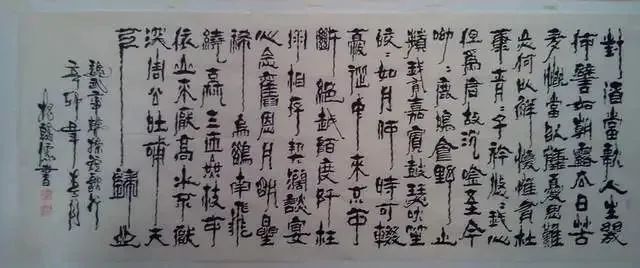 對酒當歌人生幾
何譬如朝露去日苦
多慨當以慷憂思難
忘何以解憂惟有杜
康青〻子衿悠〻我心
但爲君故沉吟至今
呦〻鹿鳴食野之
蘋我有嘉賓鼓瑟吹笙
皎〻如月何時可輟
憂從中來不可
斷絕越陌度阡枉
用相存契闊談宴
心念舊恩月明星
稀烏鵲南飛
繞三匝枝可
依山不厭高水不厭
深周公吐哺天
下歸心
魏武帝曹操短歌行
辛卯年春月
書